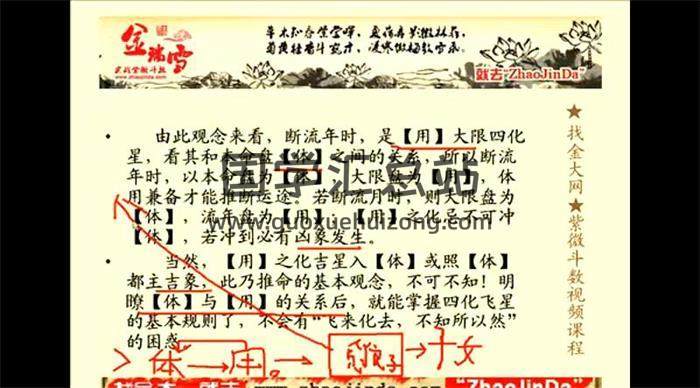 金瑞雪
www.zhaojinda.com
就去"ZhaoJinDa"
• 由此观念来看，断流年时，是【用】大限四化
星，看其和本命盘【体】之间的关系，所以断流
年时，以本命盘为【体】，大限盘为【用】，体
用兼备才能推断运途。若断流月时，则大限盘为
【体】，流年盘为【用】，【用】之化忌不可冲
【体】，若冲到必有凶象发生。
• 当然，【用】之化吉星入【体】或照【体】
都主吉象，此乃推命的基本观念，不可不知！明
瞭【体】与【用】的关系后，就能掌握四化飞星
的基本规则了，不会有“飞来化去，不知所以然”
的困惑
体 用 → → 子女
★找金大网★紫微斗数视频课程
国学汇总站
www.guoxuehuizong.com
"ZhaoJinDa"